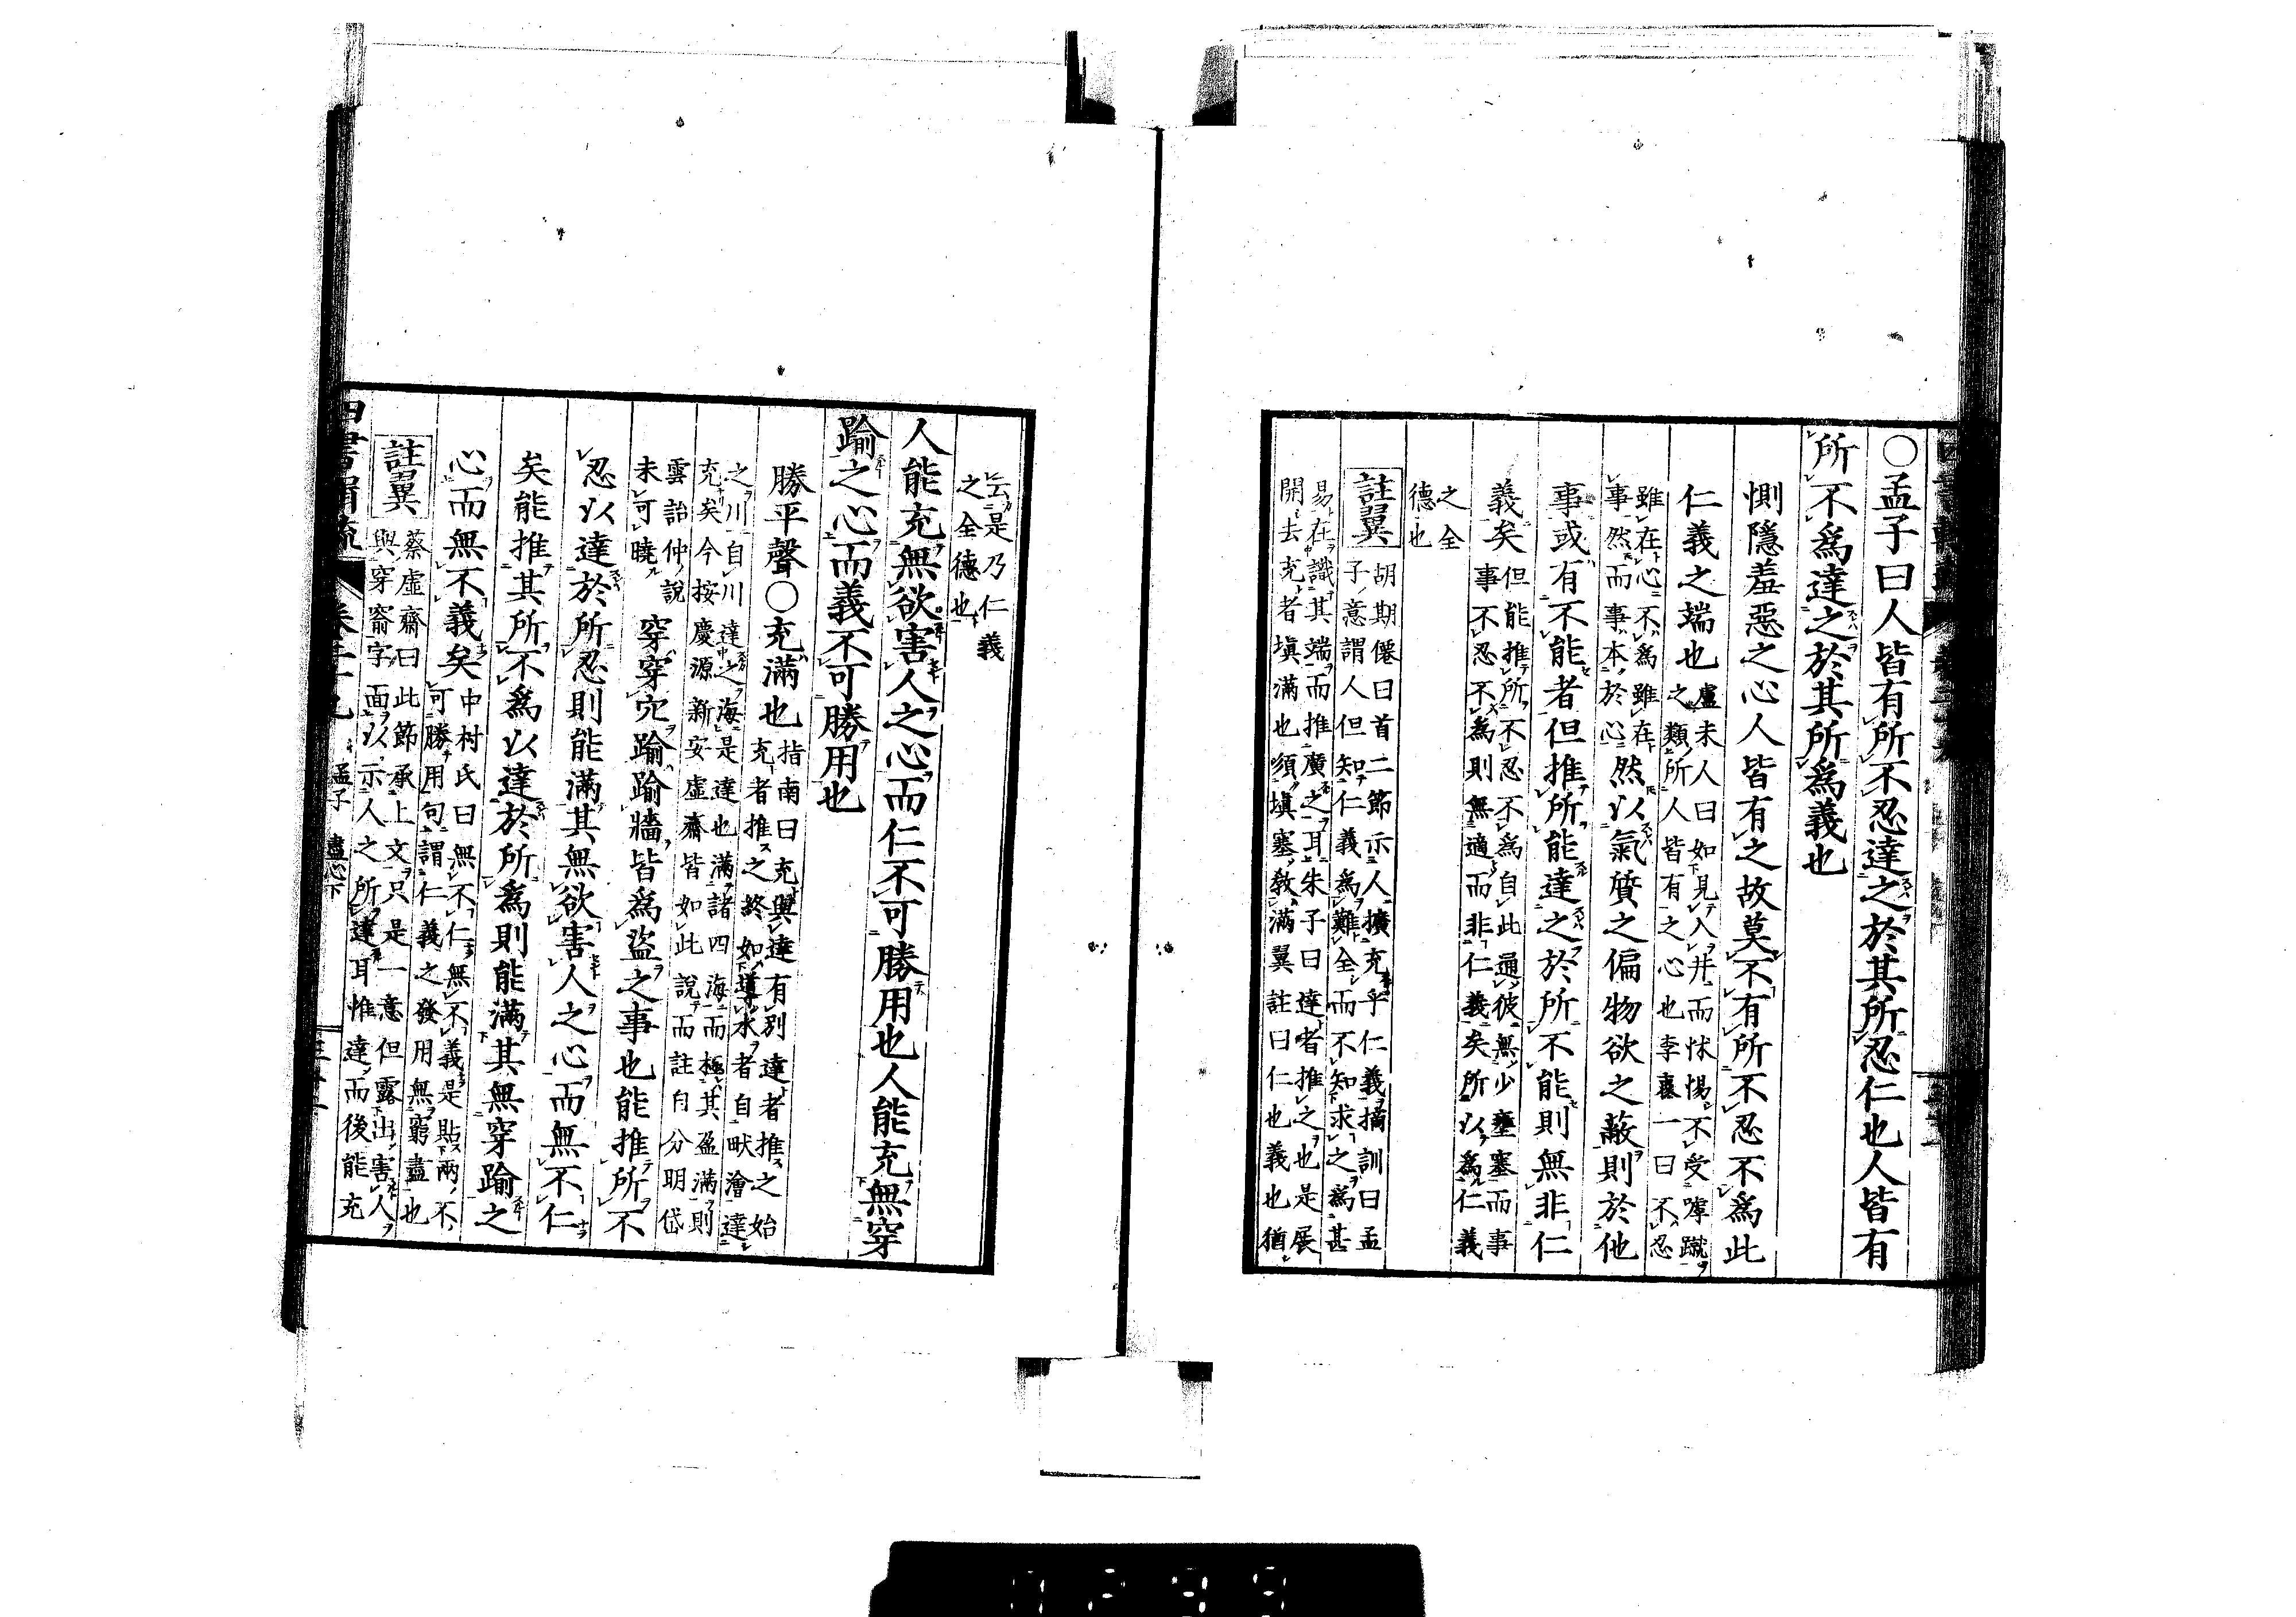 ○孟子曰人皆有所不忍達之於其所忍仁也人皆有
所不爲達之於其所爲義也
惻隱羞惡之心人皆有之故莫不有所不忍不爲此
仁義之端也
盧未人曰如見入井而怵惕不受嘑蹴
之類所人皆有之心也李衷一曰不忍
雖在心不爲雖在
事然而事本於心
然以氣質之偏物欲之蔽則於他
事或有不能者但推所能達之於所不能則無非仁
義矣
但能推所不忍不爲自此通彼無少壅塞而事
事不忍不爲則無適而非仁義矣所以爲仁義
之全
德也
註翼
胡期僊曰首二節示人擴充乎仁義摘訓曰孟
子意謂人但知仁義爲難全而不知求之爲甚
易在識其端而推廣之耳朱子曰達者推之也是展
開去充者塡滿也須塡塞教滿翼註曰仁也義也猶
云是乃仁義
之全德也
人能充無欲害人之心而仁不可勝用也人能充無穿
踰之心而義不可勝用也
勝平聲○充滿也
指南曰充與達有別達者推之始
充者推之終如導水者自畎澮達
之川自川達之海是達也滿諸四海而極其盈滿則
充矣今按慶源新安虛齋皆如此說而註自分明岱
雲詒仲說
未可曉
穿穿穴踰踰牆皆爲盜之事也能推所不
忍以達於所忍則能滿其無欲害人之心而無不仁
矣能推其所不爲以達於所爲則能滿其無穿踰之
心而無不義矣
中村氏曰無不仁無不義是貼兩不
可勝用句謂仁義之發用無窮盡也
註翼
蔡虛齋曰此節承上文只是一意但露出害人
與穿窬字面以示人之所達耳惟達而後能充
孟子 盡心下